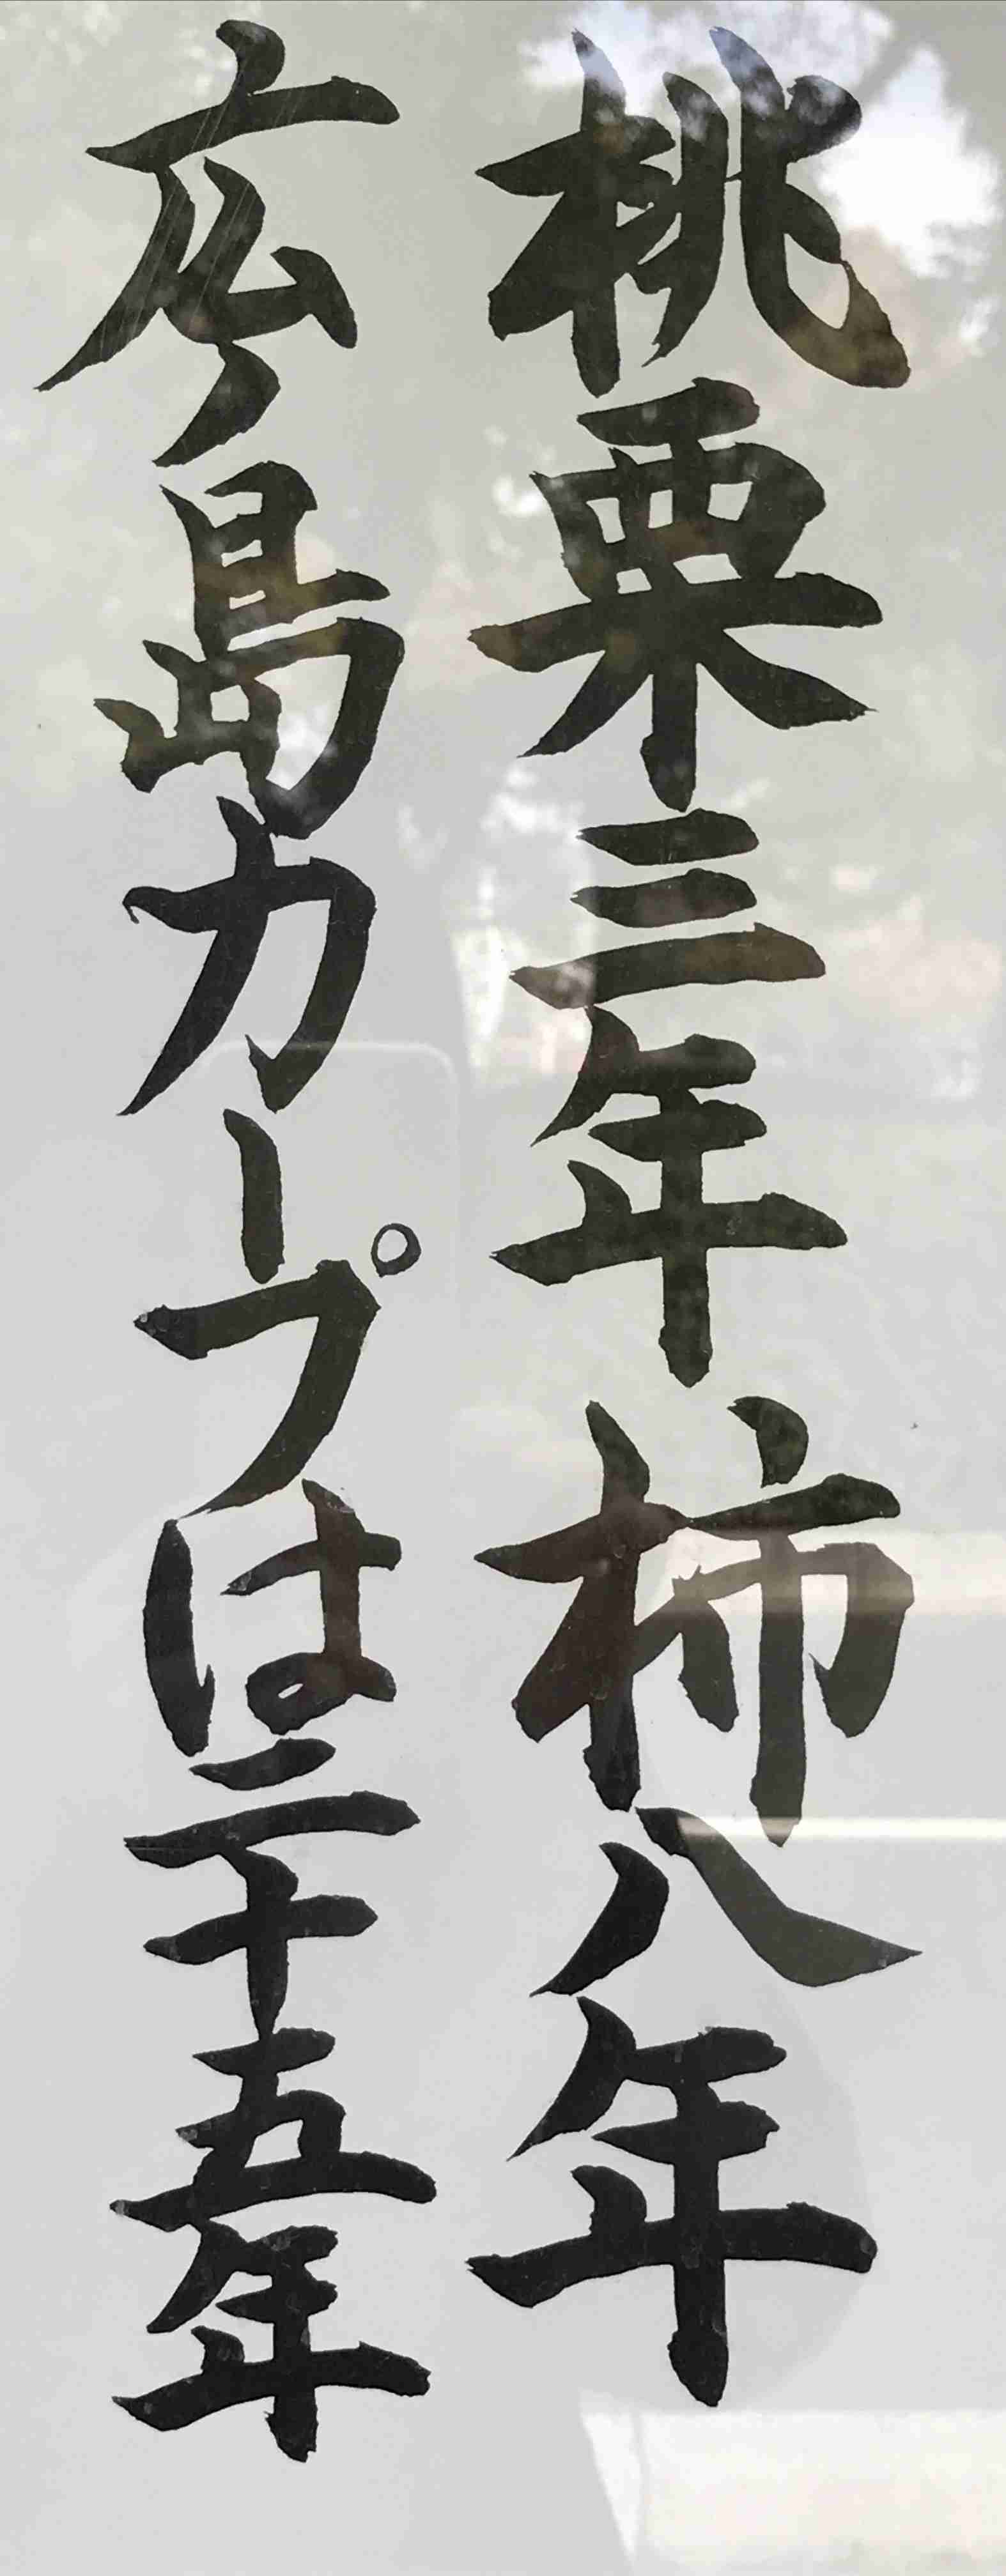 桃栗三年柿八年
広島カープは二十五年